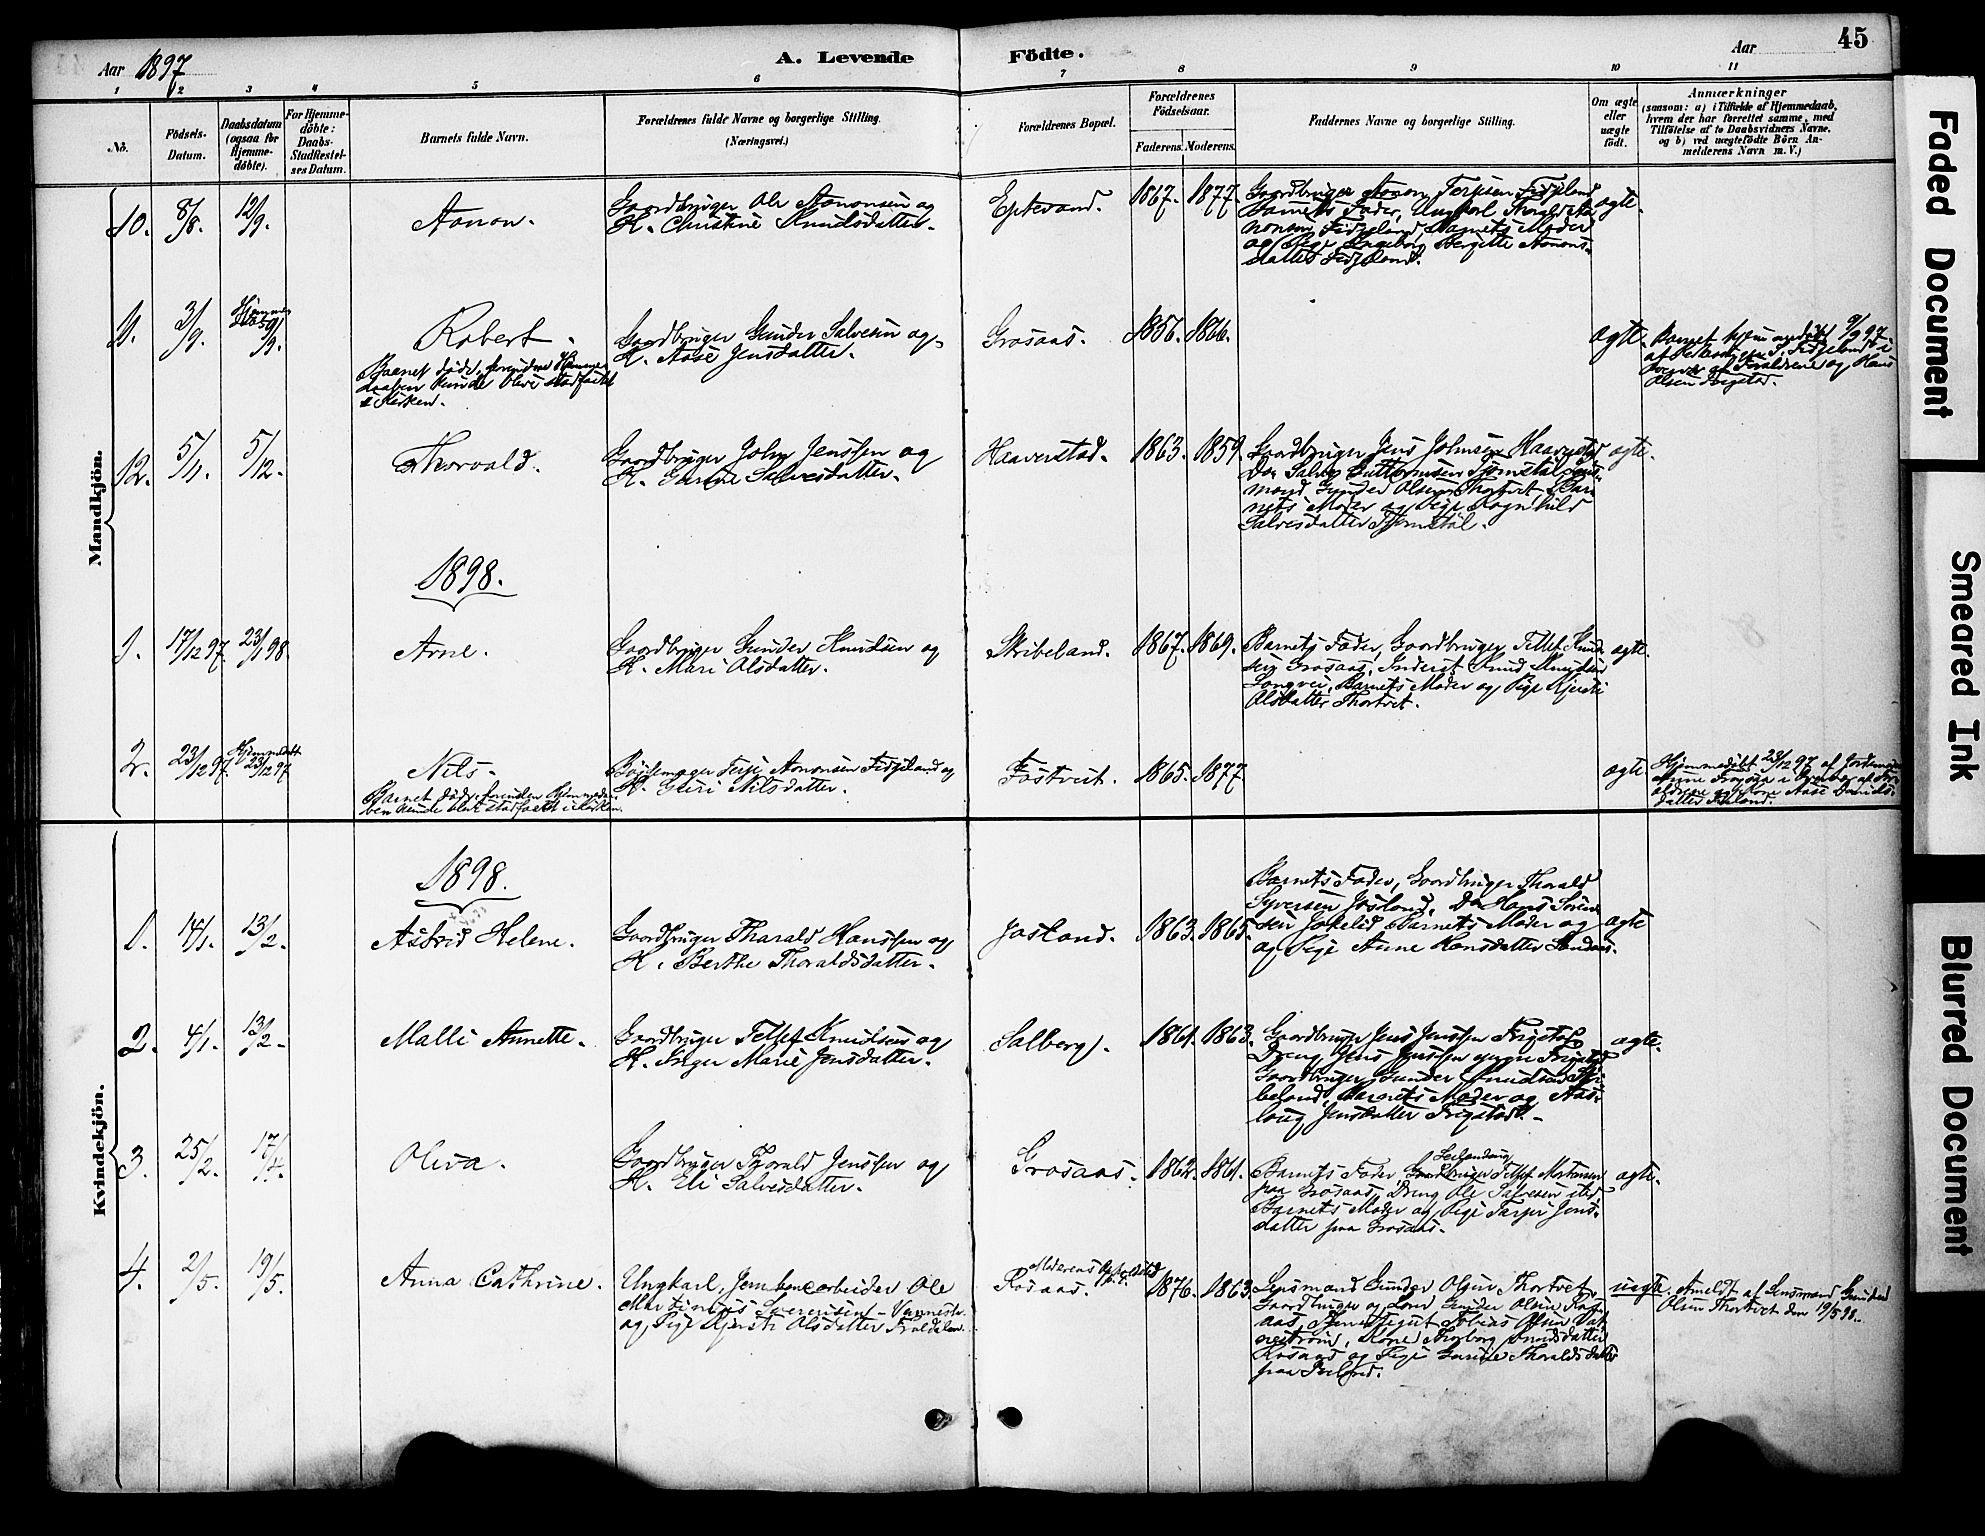 Aar 1897
A. Levende Födte.
Aar
45
1 2 3 4 5 6 7 8 9 10 11
No.
Födsels-
Datum.
Daabsdatum
(ogsaa for
Hjemme-
döbte).
For Hjemme-
döbte:
Daabs-
Stadfæstel-
ses Datum.
Barnets fulde Navn.
Forældrenes fulde Navne og borgerlige Stilling.
(Næringsvei.)
Forældrenes Bopæl.
Forældrenes
Födselsaar.
Faderens. Moderens.
Faddernes Navne og borgerlige Stilling.
Om ægte
eller
uægte
födt.
Anmærkninger
(saasom: a) i Tilfælde af Hjemmedaab,
hvem der har forrettet samme, med
Tilföielse af to Daabsvidners Navne,
og b) ved uægtefödte Börn An-
melderens Navn m. V.)
Mandkjön.
10. 8/8. 12/9. Aanon.
Gaardbruger Ole Aanonsen og
H. Christine Knudsdatter.
Eptevand. 1867. 1877.
Gaardbruger Aanon Terjesen Fidjeland
Barnets Fader, Ungkarl Thorald Aa-
nonsen Fidjeland, Barnets Moder
og Pige Ingeborg Bergitte Aanons-
datter Fidjeland.
ægte.
11. 3/9. 9/9. Robert.
Barnet døde, forinden Hjemme-
daaben kunde blive stadfæstet
i Kirken.
Gaardbruger Gunder Salvesen og
H. Aase Jensdatter.
Grosaas. 1856. 1866.
ægte. Barnet hjemmedøbt 9/9 97
af S. Fidjeland i
Overvær af Forældrene og Hans
Olsen
12. 5/11. 5/12. Thorvald.
Gaardbruger John Jenssen og
H. Gunne Salvesdatter.
Haaverstad. 1863. 1859.
Gaardbruger Jens Johnsen Haaverstad
Do. Salve Guttormsen Tjomstøl, Lens-
mand Gunder Olsen Thortvet, Bar-
nets Moder og Pige Ragnhild
Salvesdatter Tjomstøl.
ægte.
1898.
1. 17/12 97. 23/1 98. Arne.
Gaardbruger Gunder Knudsen og
H. Mari Olsdatter.
Skribeland. 1867. 1869.
Barnets Fader, Gaardbruger Tellef Knud-
sen Grosaas, Inderst Knud Knudsen
Langvei, Barnets Moder og Pige Kjersti
Olsdatter Thortvet.
ægte.
2. 23/12 97. Hjemmedøbt 23/12 97 Nils.
Barnet døde, forinden Hjemmedaa-
ben kunde blive stadfæstet i Kirken.
Terje Aanonsen Fidjeland og
H. Guri Nilsdatter.
Fostveit. 1865. 1877
ægte Hjemmedøbt 23/12 97 af Jordemoder
i Overvær af For-
ældrene og Kone Aase Daniels-
datter
Kvindekjön.
1898.
1. 14/1. 13/2. Astrid Helene.
Gaardbruger Tharald Hanssen og
H. Berthe Tharaldsdatter.
Jøsland. 1863. 1865.
Barnets Fader, Gaardbruger Tharald
Syversen Jøsland, Do Hans Sören-
sen Jökelid, Barnets Moder og
og Pige Anne Hansdatter
ægte
2. 4/1. 13/2. Malli Annette.
Gaardbruger Tellef Knudsen og
H. Inger Marie Jensdatter.
Salberg. 1861. 1863.
Gaardbruger Jens Jenssen Frigstad
Dreng Jens Jenssen yngre Frigstad
Gaardbruger Gunder Knudsen Skri-
beland, Barnets Moder og Aas-
laug Jensdatter Frigstad.
ægte.
3. 25/2. 17/4. Oliva.
Gaardbruger Tharald Jenssen og
H. Eli Salvesdatter.
Grosaas. 1862. 1861.
Barnets Fader, Gaardbruger Tellef Mortensen
paa Grosaas, Dreng Ole Salvesen ibd,
Barnets Moder og Pige Tarjer Jens-
datter paa Grosaas.
ægte.
4. 2/5. 19/5. Anna Cathrine.
Ungkarl, Jernbanearbeider Ole
Martinius Sörensen
og Pige Kjersti Olsdatter
Moderens Opholdssted
Rosaas. 1876. 1863.
Lensmand Gunder Olsen Thortvet,
Gaardbruger og Gunder Olsen Ros-
aas, Tobias Olsen Vat-
neström, Kone Thorborg Knudsdatter
Rosaas og Pige Gurine Tharaldsdatter
paa
uægte. Anmeldt af Lensmand Gunder
Olsen Thortvet den 19/5 98.
Faded Document
Smeared Ink
Blurred Document